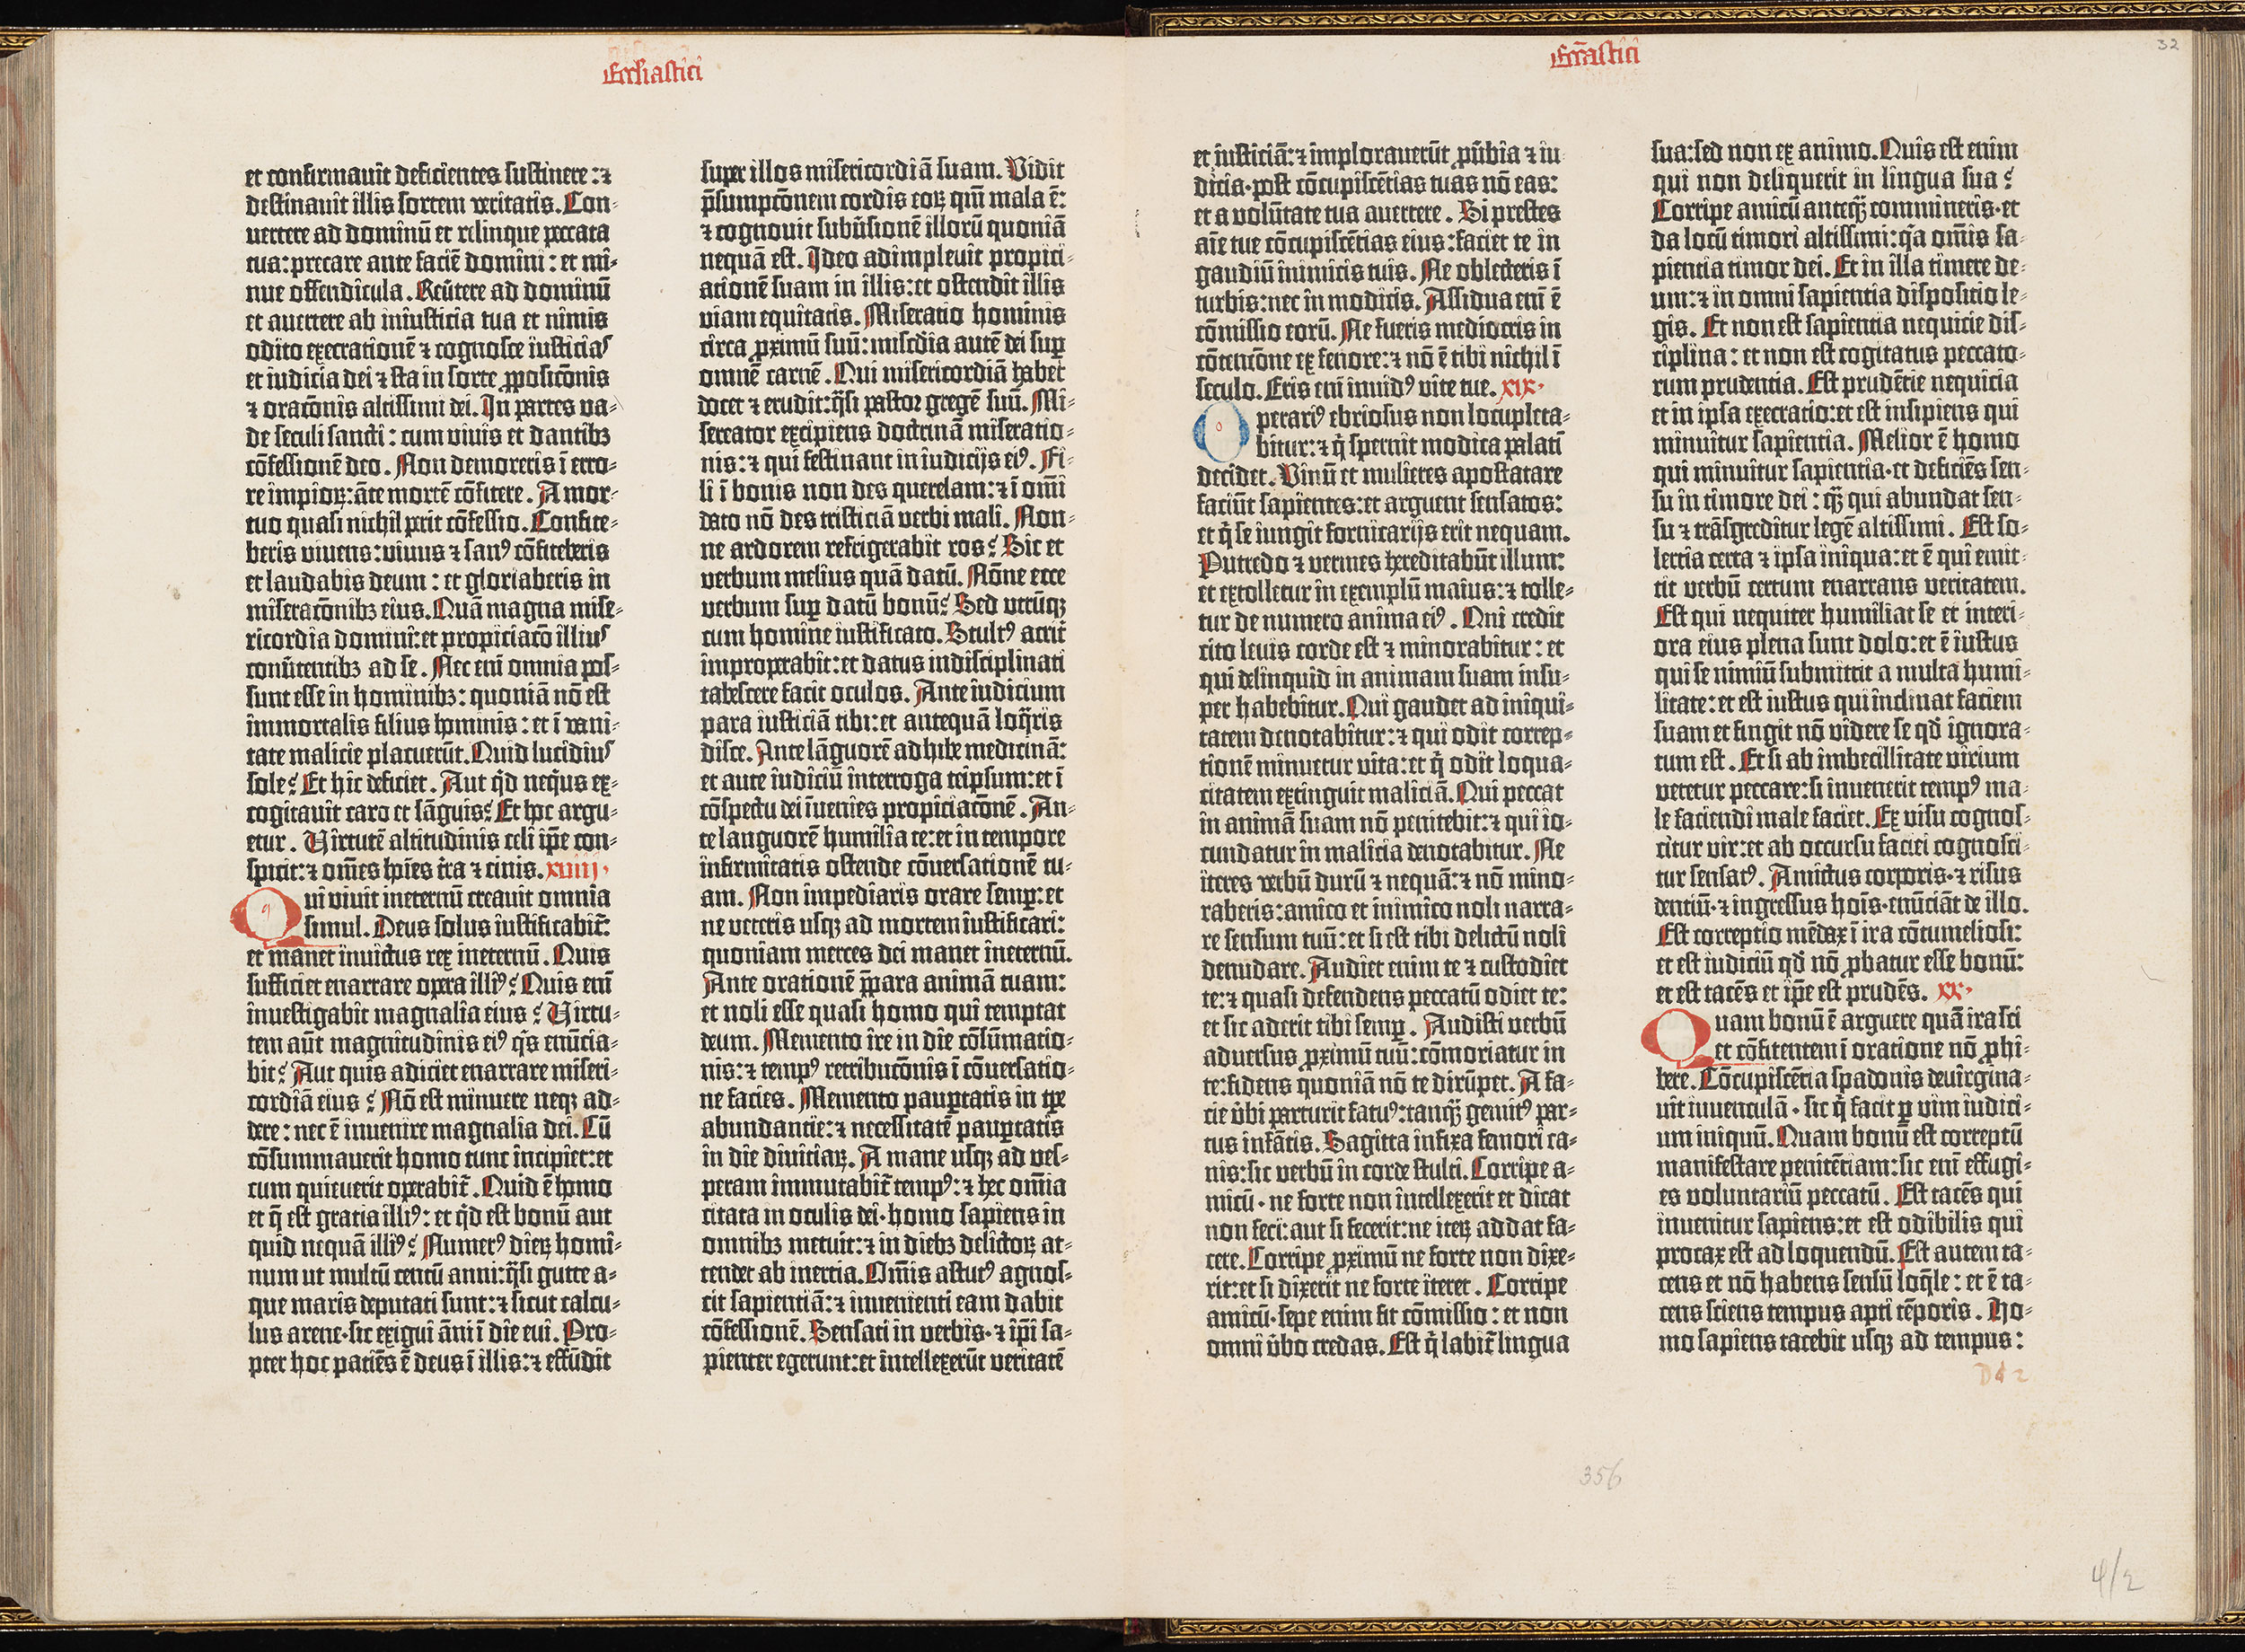 Ecclesiastici
et confirmavit deficientes sustinere : ⁊
destinavit illis sortem veritatis. Con-
vertere ad dominū et relinque peccata
tua: precare ante faciē domini : et mi-
nue offendicula. Reūtere ad dominū
et avertere ab iniusticia tua et nimis
odito execrationē ⁊ cognosce iusticias
et iudicia dei ⁊ sta in sorte ꝓposicōnis
⁊ oracōnis altissimi dei. In partes va-
de seculi sancti : cum vivis et dantibꝫ
cōfessionē deo. Non demoreris ī erro-
re impioꝝ: āte mortē cōfitere. A mor-
tuo quasi nichil perit cōfessio. Confite-
beris vivens: vivus ⁊ sanꝰ cōfiteberis
et laudabis deum : et gloriaberis in
miseracōnibꝫ eius. Quā magna mise-
ricordia domini: et propiciacō illius
conūtentibꝫ ad se. Nec enī omnia pos-
sunt esse in hominibꝫ: quoniā nō est
immortalis filius hominis : et ī vani-
tate malicie placuerūt. Quid lucidius
sole? Et hic deficiet. Aut qd̓ nequus ex-
cogitavit caro et sāguis? Et hoc argu-
etur. Virtutē altitudinis celi ip̄e con-
spicit: ⁊ om̄es hoīes t̓ra ⁊ cinis. xviij.
Qui vivit ineternū creavit omnia
simul. Deus solus iustificabit̄:
et manet invictus rex ineternū. Quis
sufficiet enarrare opera illiꝰ? Quis enī
investigabit magnalia eius? Virtu-
tem aūt magnitudinis eiꝰ q̓s enūcia-
bit? Aut quis adiciet enarrare miseri-
cordiā eius? Nō est minuere neqꝫ ad-
dere : nec ē invenire magnalia dei. Cū
cōsummaverit homo tunc incipiet: et
cum quieverit operabit̄. Quid ē homo
et q̄ est gratia illiꝰ: et qd̓ est bonū aut
quid nequā illiꝰ? Numerꝰ dieꝝ homi-
num ut multū centū anni: q̄si gutte a-
que maris deputati sunt: ⁊ sicut calcu-
lus arene · sic exigui āni ī die evi. Pro-
pter hoc patiēs ē deus ī illis: ⁊ effūdit
super illos misericordiā suam. Vidit
p̄sumpcōnem cordis eoꝝ qm̄ mala ē:
⁊ cognovit subūsionē illorū quoniā
nequā est. Ideo adimplevit propici-
ationē suam in illis: et ostendit illis
viam equitatis. Miseratio hominis
circa ꝓximū suū: mis̄cdia autē dei suꝑ
omnē carnē. Qui misericordiā habet
docet ⁊ erudit: q̄si pastor gregē suū. Mi-
sereator excipiens doctrinā miseratio-
nis: ⁊ qui festinant in iudicijs eiꝰ. Fi-
li ī bonis non des querelam: ⁊ ī om̄i
dato nō des tristiciā verbi mali. Non-
ne ardorem refrigerabit ros? Sic et
verbum melius quā datū. Nōne ecce
verbum suꝑ datū bonū? Sed utrūqꝫ
cum homine iustificato. Stultꝰ acrit̓
improperabit: et datus indisciplinati
tabescere facit oculos. Ante iudicium
para iusticiā tibi: et antequā loq̄ris
disce. Ante lāguorē adhibe medicinā:
et ante iudiciū interroga teipsum: et ī
cōspectu dei īvenies propiciacōnē. An-
te languorē humilia te: et in tempore
infirmitatis ostende cōversationē tu-
am. Non impediaris orare semꝑ: et
ne veteris usqꝫ ad mortem iustificari:
quoniam merces dei manet ineternū.
Ante orationē p̄para animā tuam:
et noli esse quasi homo qui temptat
deum. Memento ire in die cōsūmatio-
nis: ⁊ tempꝰ retribucōnis ī cōversatio-
ne faciei. Memento pauꝑtatis in tp̄e
abundantie: ⁊ necessitatē pauꝑtatis
in die divitiaꝝ. A mane usqꝫ ad ves-
peram immutabit̄ tempꝰ: ⁊ hec om̄ia
citata in oculis dei · homo sapiens in
omnibꝫ metuit: ⁊ in diebꝫ delictoꝝ at-
tendet ab inertia. Om̄is astutꝰ agnos-
cit sapientiā: ⁊ invenienti eam dabit
cōfessionē. Sensati in verbis · ⁊ ip̄i sa-
pienter egerunt: et intellexerūt veritatē
Eccl̄iastici
32
et iusticiā: ⁊ imploraverūt ꝓūbia ⁊ iu
dicia · post cōcupiscētias tuas nō eas:
et a volūtate tua avertere. Si prestes
aīe tue cōcupiscētias eius: faciet te in
gaudiū inimicis tuis. Ne oblecteris ī
turbis: nec in modicis. Assidua enī ē
cōmissio eorū. Ne fueris mediocris in
cōtencōne ex fenore: ⁊ nō ē tibi nichil ī
seculo. Eris enī invidꝰ vite tue. xix.
Operariꝰ ebriosus non locupleta-
bitur: ⁊ q̓ spernit modica palatī
decidet. Vinū et mulieres apostatare
faciūt sapientes: et arguent sensatos:
et q̓ se iungit fornicarijs erit nequam.
Putredo ⁊ vermes hereditabūt illum:
et extolletur in exemplū maius: ⁊ tolle-
tur de numero anima eiꝰ. Qui credit
cito levis corde est ⁊ minorabitur : et
qui delinquid in animam suam insu-
per habebitur. Qui gaudet ad iniqui-
tatem denotabitur: ⁊ qui odit correp-
tionē minuetur vita: et q̓ odit loqua-
citatem extinguit maliciā. Qui peccat
in animā suam nō penitebit: ⁊ qui io-
cundatur in malicia denotabitur. Ne
iteres verbū durū ⁊ nequā: ⁊ nō mino-
raberis: amico et inimico noli narra-
re sensum tuū: et si est tibi delictū noli
denudare. Audiet enim te ⁊ custodiet
te: ⁊ quasi defendens peccatū odiet te:
et sic aderit tibi semꝑ. Audisti verbū
adversus ꝓximū tuū: cōmoriatur in
te: fidens quoniā nō te dirūpet. A fa-
cie ūbi parturit fatuꝰ: tanqꝫ̄ gemitꝰ par-
tus infātis. Sagitta infixa femori ca-
nis: sic verbū in corde stulti. Corripe a-
micū · ne forte non intellexerit et dicat
non feci: aut si fecerit: ne iteꝝ addat fa-
cere. Corripe ꝓximū ne forte non dixe-
rit: et si dixerit ne forte iteret. Corripe
amicū · sepe enim fit cōmissio : et non
omni ūbo credas. Est q̓ labit̄ lingua
sua: sed non ex animo. Quis est enim
qui non deliquerit in lingua sua?
Corripe amicū anteqꝫ̄ commineris · et
da locū timori altissimi: q̓a om̄is sa-
pientia timor dei. Et in illa timere de-
um: ⁊ in omni sapientia dispositio le-
gis. Et non est sapientia nequicie dis-
ciplina : et non est cogitatus peccato-
rum prudentia. Est prudētie nequicia
et in ipsa execratio: et est insipiens qui
minuitur sapientia. Melior ē homo
qui minuitur sapientia · et deficiēs sen-
su in timore dei : qꝫ̄ qui abundat sen-
su ⁊ trāsgreditur legē altissimi. Est so-
lercia certa ⁊ ipsa iniqua: et ē qui emit-
tit verbū certum enarrans veritatem.
Est qui nequiter humiliat se et interi-
ora eius plena sunt dolo: et ē iustus
qui se nimiū submittit a multa humi-
litate: et est iustus qui inclinat faciem
suam et fingit nō videre se qd̓ ignora-
tum est. Et si ab imbecillitate virium
vetetur peccare: si invenerit tempꝰ ma-
le faciendi male faciet. Ex visu cognos-
citur vir: et ab occursu faciei cognosci-
tur sensatꝰ. Amictus corporis · ⁊ risus
dentiū · ⁊ ingressus hoīs · enūciāt de illo.
Est correptio mēdax ī ira cōtumeliosi:
et est iudiciū qd̓ nō ꝓbatur esse bonū:
et est tacēs et ip̄e est prudēs. xx.
Quam bonū ē arguere quā irasci
et cōfitentem ī oratione nō ꝓhi-
bere. Cōcupiscētia spadonis devirgina-
vit iuvenculā · sic q̓ facit ꝑ vim iudici-
um iniquū. Quam bonū est correptū
manifestare penitētiam: sic enī effugi-
es voluntariū peccatū. Est tacēs qui
invenitur sapiens: et est odibilis qui
procax est ad loquendū. Est autem ta-
cens et nō habens sensū loq̄le : et ē ta-
cens sciens tempus apti tēporis. Ho-
mo sapiens tacebit usqꝫ ad tempus:
356
4/2